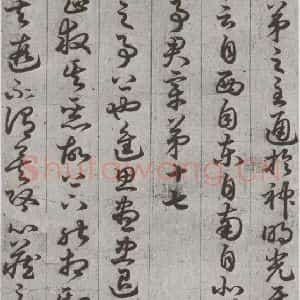 弟之至通於神明光于
云自西自東自南自北
事君章第十七
之事上也進思盡忠退
匡救其惡故上下能相親
矣遐不謂矣中心藏之
Shufawang.cn